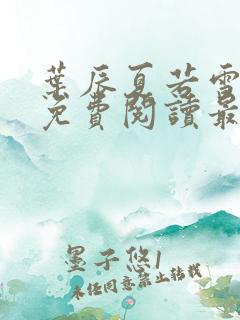 葉辰夏若雪
免費閱讀最
墨子悠1
未經同意禁止轉載